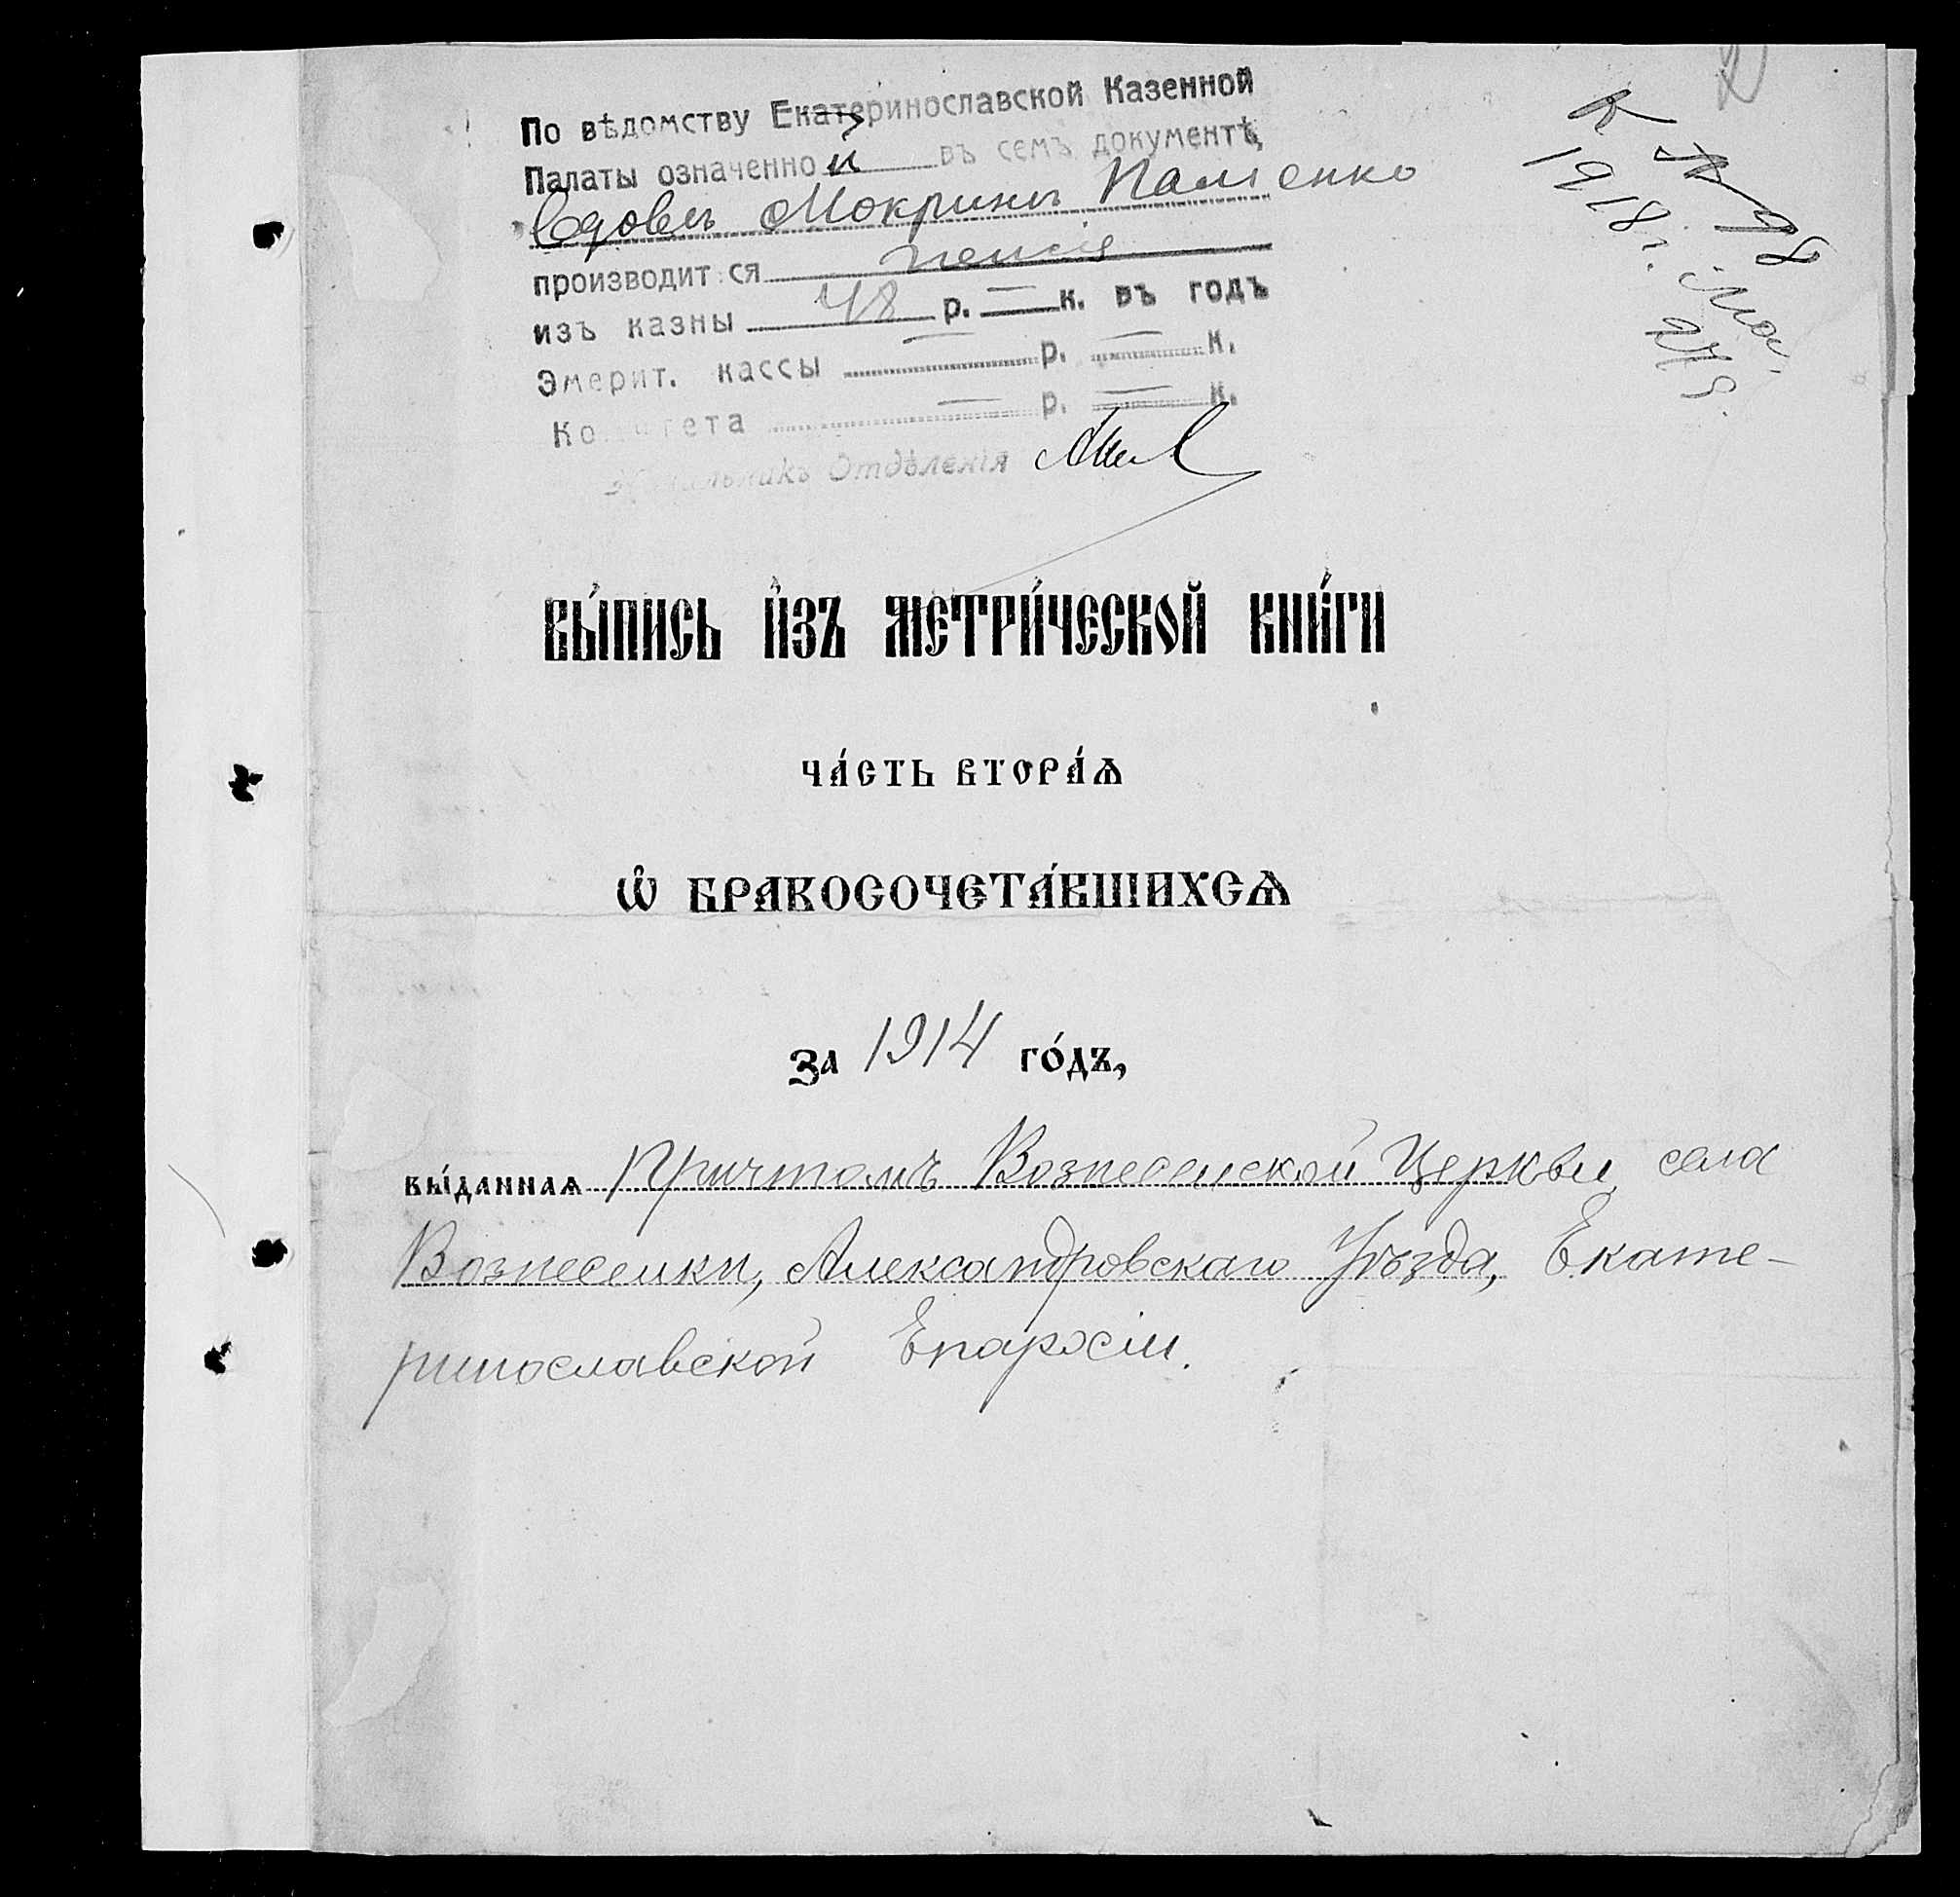 По вѣдомству Екатеринославской Казенной
Палаты означенной въ семъ документѣ
вдовѣ Мокринѣ
производится пенсія
изъ казны 48 р. — к. въ годъ
Эмерит. кассы — р. — к.
Комитета — р. — к.
Начальникъ Отдѣленія
1918 г.
ВЫ́ПИСЬ И҆ЗЪ МЕТРИ́ЧЕСКОЙ КНИ́ГИ
ЧА́СТЬ ВТОРА́Ѧ
Ѡ҆ БРАКОСОЧЕТА́ВШИХСѦ
За 1914 го́дъ,
вы́даннаѧ Причтомъ Вознесенской Церкви села
Вознесенки, Александровскаго Уѣзда, Екате-
ринославской Епархіи.